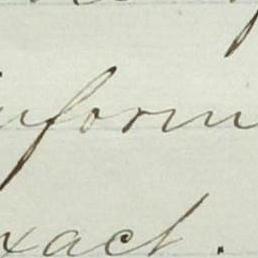 inform
xact.